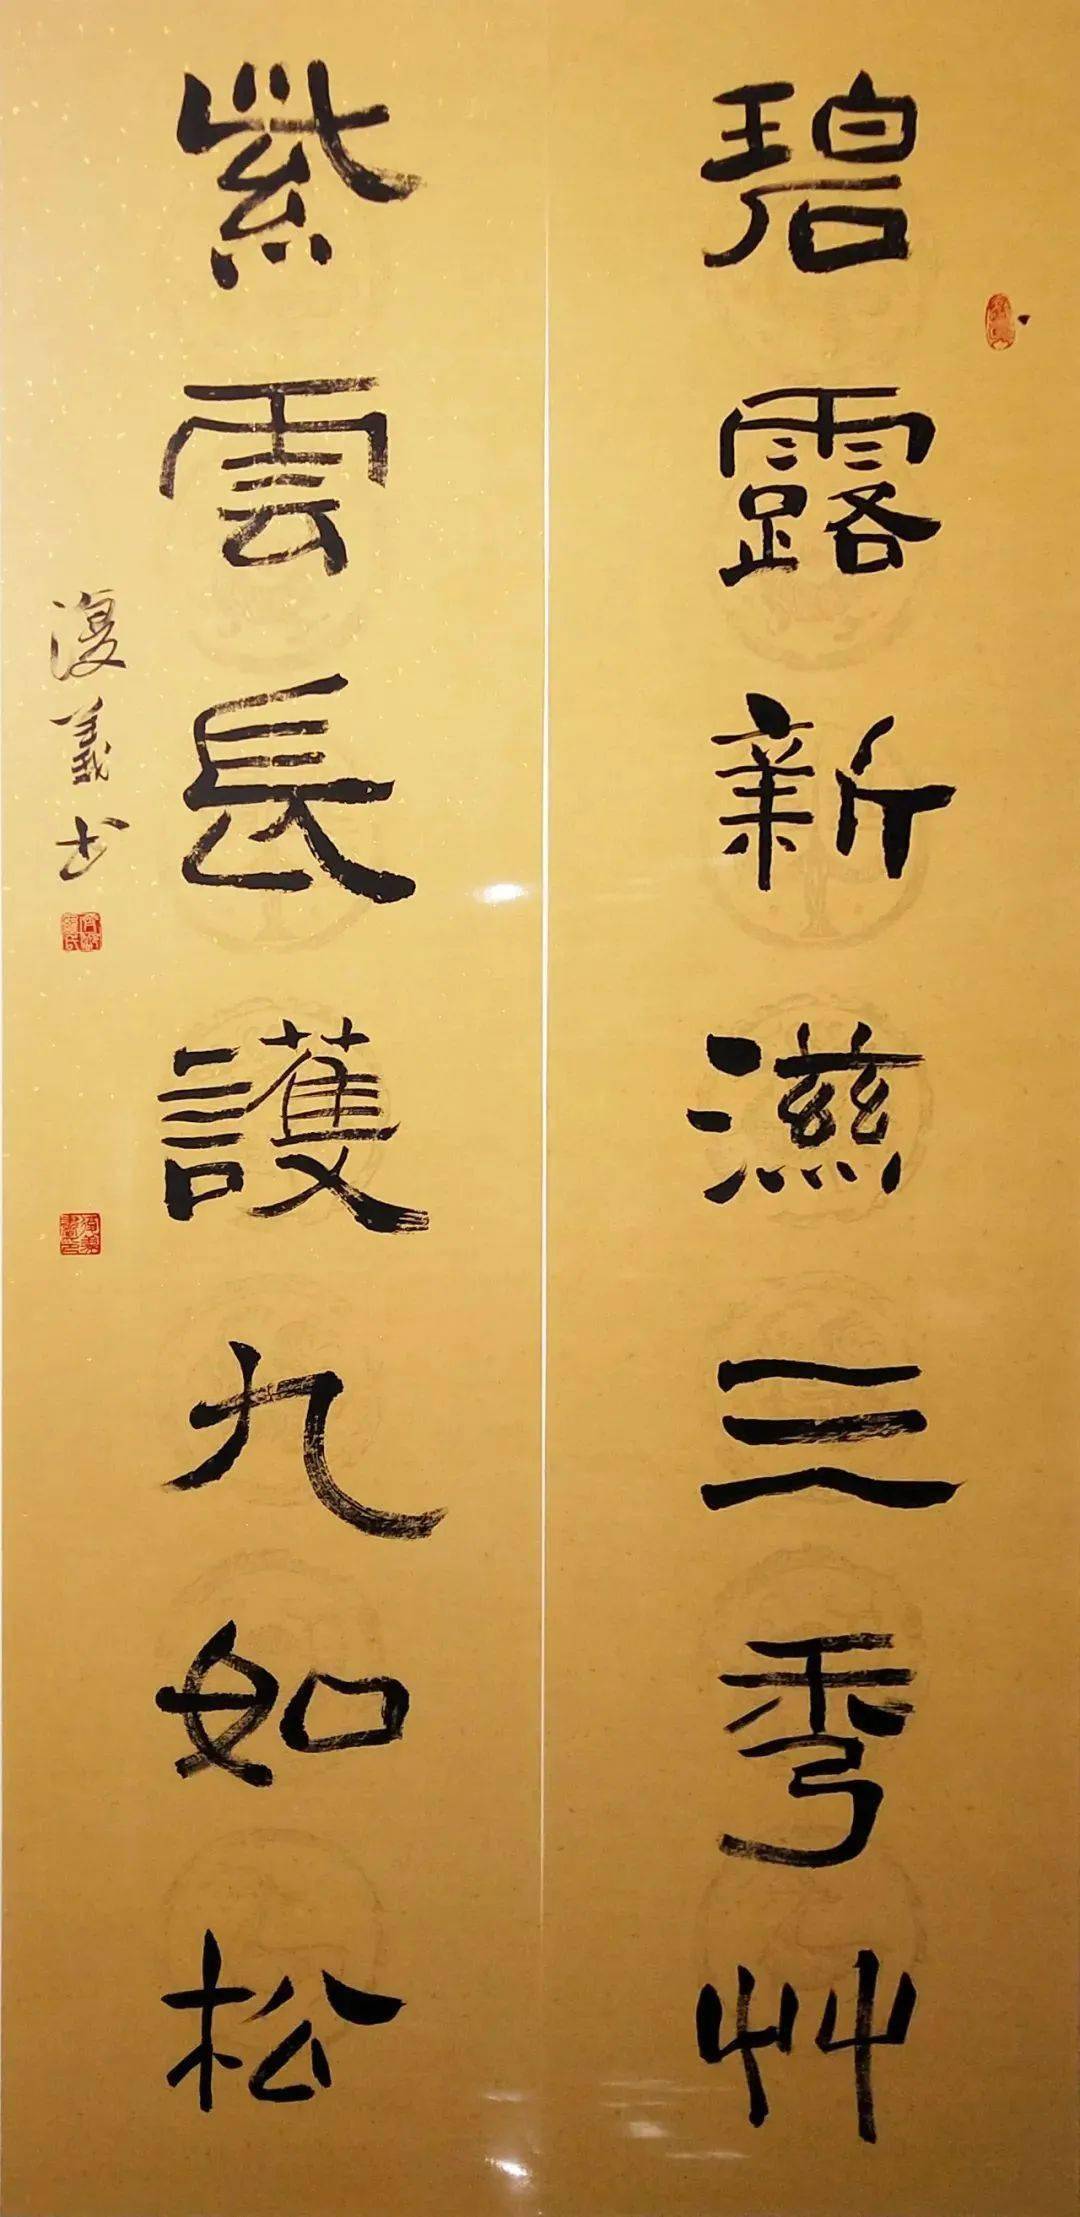 碧露新滋三秀艸
紫雲長護九如松
復義书